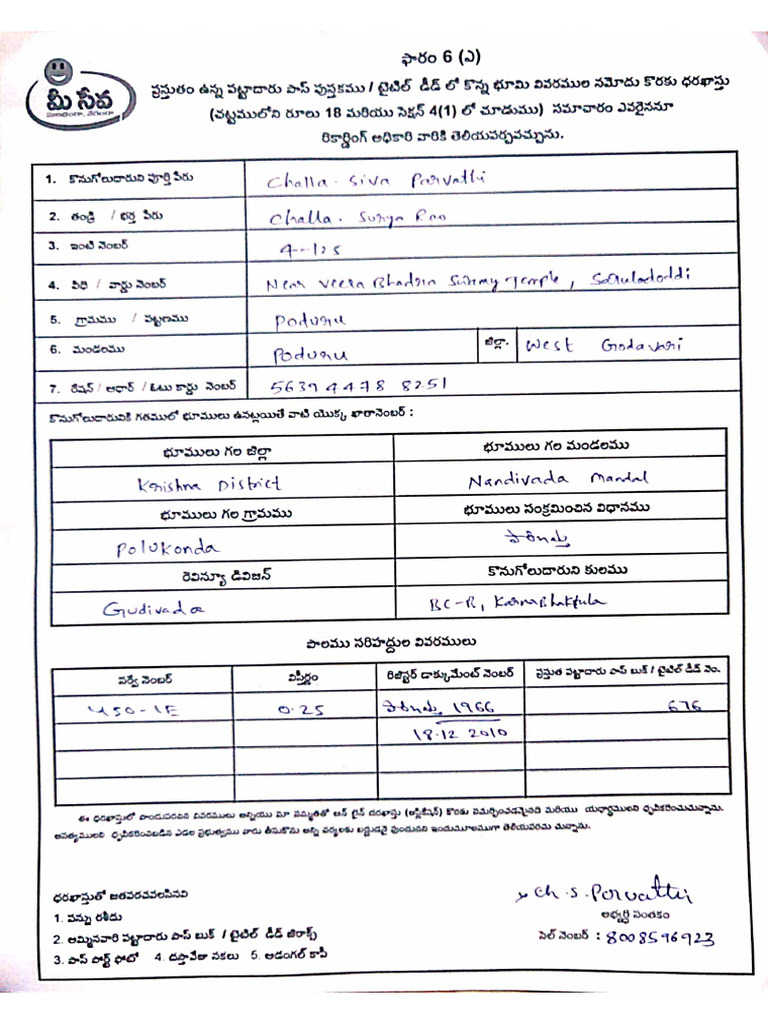 ఫారం 6 (ఎ)
మీ సేవ
ప్రస్తుతం ఉన్న పట్టాదారు పాస్ పుస్తకము / టైటిల్ డీడ్ లో కొన్న భూమి వివరముల నమోదు కొరకు ధరఖాస్తు
(చట్టములోని రూలు 18 మరియు సెక్షన్ 4(1) లో చూడుము) సమాచారం ఎవరైననూ
రికార్డింగ్ అధికారి వారికి తెలియపర్చవచ్చును.
1. కొనుగోలుదారుని పూర్తి పేరు Challa. Siva Parvathi
2. తండ్రి / భర్త పేరు Challa. Surya Rao
3. ఇంటి నెంబర్ 4-125
4. వీధి / వార్డు నెంబర్ Near Veera Bhadra Swamy Temple,
5. గ్రామము / పట్టణము Poduru
6. మండలము Poduru జిల్లా. West Godavari
7. రేషన్ / ఆధార్ / ఓటు కార్డు నెంబర్ 5639 4478 8251
కొనుగోలుదారునికి గతములో భూములు ఉనట్లయితే వాటి యొక్క ఖాతానెంబర్ :
భూములు గల జిల్లా భూములు గల మండలము
Krishna District Nandivada Mandal
భూములు గల గ్రామము భూములు సంక్రమించిన విధానము
Polukonda
రెవిన్యూ డివిజన్ కొనుగోలుదారుని కులము
Gudivada BC-B,
పొలము సరిహద్దుల వివరములు
సర్వే నెంబర్ విస్తీర్ణం రిజిస్టర్ డాక్కుమెంట్ నెంబర్ ప్రస్తుత పట్టాదారు పాస్ బుక్ / టైటిల్ డీడ్ నెం.
450-1E 0.25 1966 676
18.12 2010
ఈ ధరఖాస్తులో పొందుపరచిన వివరములు అన్నియు మా సమ్మతితో ఆన్ లైన్ దరఖాస్తు (అప్లికేషన్) కొరకు సమర్పించడమైనది మరియు యథార్థములని ధృవీకరించుచున్నాను.
అసత్యములని ధృవీకరించబడిన ఎడల ప్రభుత్వము వారు తీసుకొను అన్ని చర్యలకు బద్దుడనై వుందునని ఇందుమూలముగా తెలియపరచు చున్నాను.
ధరఖాస్తుతో జతపరచవలసినవి
x Ch. S. Parvathi
1. పన్ను రశీదు
అభ్యర్థి సంతకం
2. అమ్మినవారి పట్టాదారు పాస్ బుక్ / టైటిల్ డీడ్ జిరాక్స్
సెల్ నెంబర్ : 8008596923
3. పాస్ పోర్ట్ ఫోటో 4. దస్తావేజు నకలు 5. అడంగల్ కాపీ